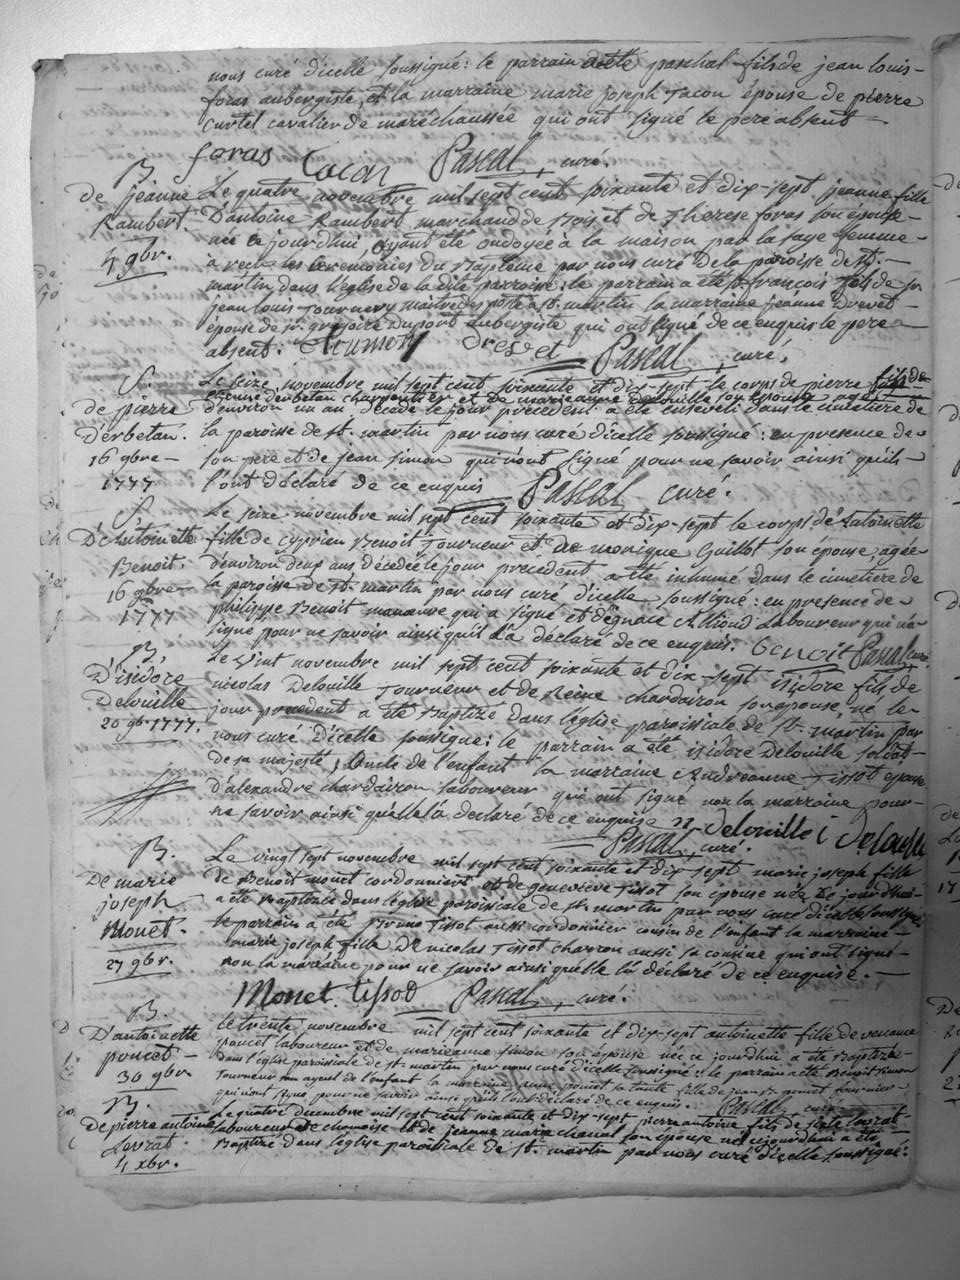 nous curé d'icelle soussigné: le parrain a été paschal fils de jean louis-
foras aubergiste, et la marraine marie joseph Tacon épouse de pierre
curtel cavalier de maréchaussée qui ont signé le pere absent
foras Tacon Pascal, curé.
B.
de jeanne
Rambert.
4 9br.
Le quatre novembre mil sept cent soixante et dix-sept jeanne fille
D'antoine Rambert marchand de bois et de Therese foras son épouse-
née ce jourd'hui, ayant été ondoyée à la maison par la sage femme-
a reçu les Ceremonies du Baptême par nous curé de la paroisse de St.-
martin dans l'église de la dite parroisse: le parrain a été Sr. françois fils de Sr.
jean louis Tournery maitre des postes a St. martin la marraine jeanne Drevet-
épouse de Sr. gregoire Dufort Aubergiste qui ont signé de ce enquis le pere
absent. Drevet Pascal, curé,
S.
de pierre
D'erbetan.
16 9bre-
1777
Le seize novembre mil sept cent soixante et dix-sept le corps de pierre fils de
etienne derbetan charpentier et de marieanne Delouille son épouse agé
d'environ un an décédé le jour precedent a été enseveli dans le cimetiere de
la paroisse de St. martin par nous curé d'icelle soussigné: en presence de
son pere et de jean simon qui n'ont signé pour ne savoir ainsi qu'ils
l'ont déclaré de ce enquis Pascal curé.
S.
D'Antoinette
Benoit.
16 9bre-
1777
Le seize novembre mil sept cent soixante et dix-sept le corps d'Antoinette
fille de Cyprien Benoit Tourneur et de monique Guillot son epouse, agée
d'environ deux ans décédée le jour precedent a été inhumé dans le cimetiere de
la paroisse de St. martin par nous curé d'icelle soussigné: en presence de
philippe Benoit manœuvre qui a signé et d'ignace Allioud Laboureur qui n'a
signé pour ne savoir ainsi qu'il l'a déclaré de ce enquis. Benoit Pascal, curé.
B.
D'isidore
Delouille
20 9br. 1777.
Le vint novembre mil sept cent soixante et dix-sept isidore fils de
nicolas Delouille Tourneur et de Reine chardairon son épouse, né le
jour precedent a été Baptizé dans l'église paroissiale de St. martin par
nous curé d'icelle soussigné: le parrain a été isidore Delouille soldat
de sa majesté, oncle de l'enfant la marraine Andreanne Tissot épouse
d'alexandre chardairon laboureur qui ont signé non la marraine pour
ne savoir ainsi qu'elle l'a déclaré de ce enquise Delouille i Delouille
Pascal, curé.
B.
De marie
joseph
Monet.
27 9br.
Le vingt sept novembre mil sept cent soixante et dix sept marie joseph fille
de Benoit monet cordonnier et de geneviève Tissot son épouse née Le jourd'hui
a été Baptizée dans l'église paroissiale de St. martin par nous curé d'icelle soussigné
le parrain a été Bruno Tissot aussi cordonnier cousin de l'enfant la marraine
marie joseph fille De nicolas Tissot charron aussi sa cousine qui ont signé
non la marraine pour ne savoir ainsi qu'elle l'a déclaré de ce enquise.
Monet Tissod Pascal, curé.
B.
D'antoinette
poncet-
30 9br
Le trente novembre mil sept cent soixante et dix-sept antoinette fille de
poncet laboureur et de marieanne simon son épouse née ce jourd'hui a été Baptizée
dans l'église paroissiale de St. martin par nous curé d'icelle soussigné: le parrain a été Benoit simon
Tourneur son ayeul de l'enfant la marraine anne poncet sa tante fille de jean
qui n'ont signé pour ne savoir ainsi qu'ils l'ont déclaré de ce enquis. Pascal, curé
B.
De pierre antoine
Levrat.
4 xbr.
Le quatre decembre mil sept cent soixante et dix sept pierre antoine fils de Levrat
laboureur et de jeanne marie chanal son épouse né ce jourd'hui a été
Baptizé dans l'église paroissiale de St. martin par nous curé d'icelle soussigné: